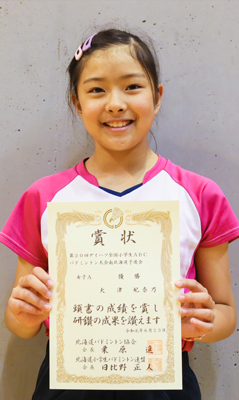 賞状
第20回ダイハツ全国小学生ABC
バドミントン大会南北海道予選会
女子A 優勝
大津妃杏乃
頭書の成績を賞し
研鑽の成果を讃えます
北海道バドミントン協会
会長 栗原
北海道小学生バドミントン連盟
会長 日比野 正人